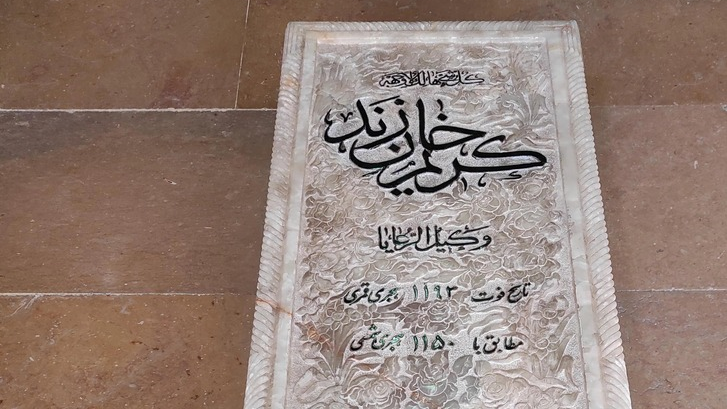 کل شیء هالک الا وجهه
کریم خان زند
وکیل الرعایا
تاریخ فوت ۱۱۹۳ هجری قمری
مطابق با ۱۱۵۰ هجری شمسی